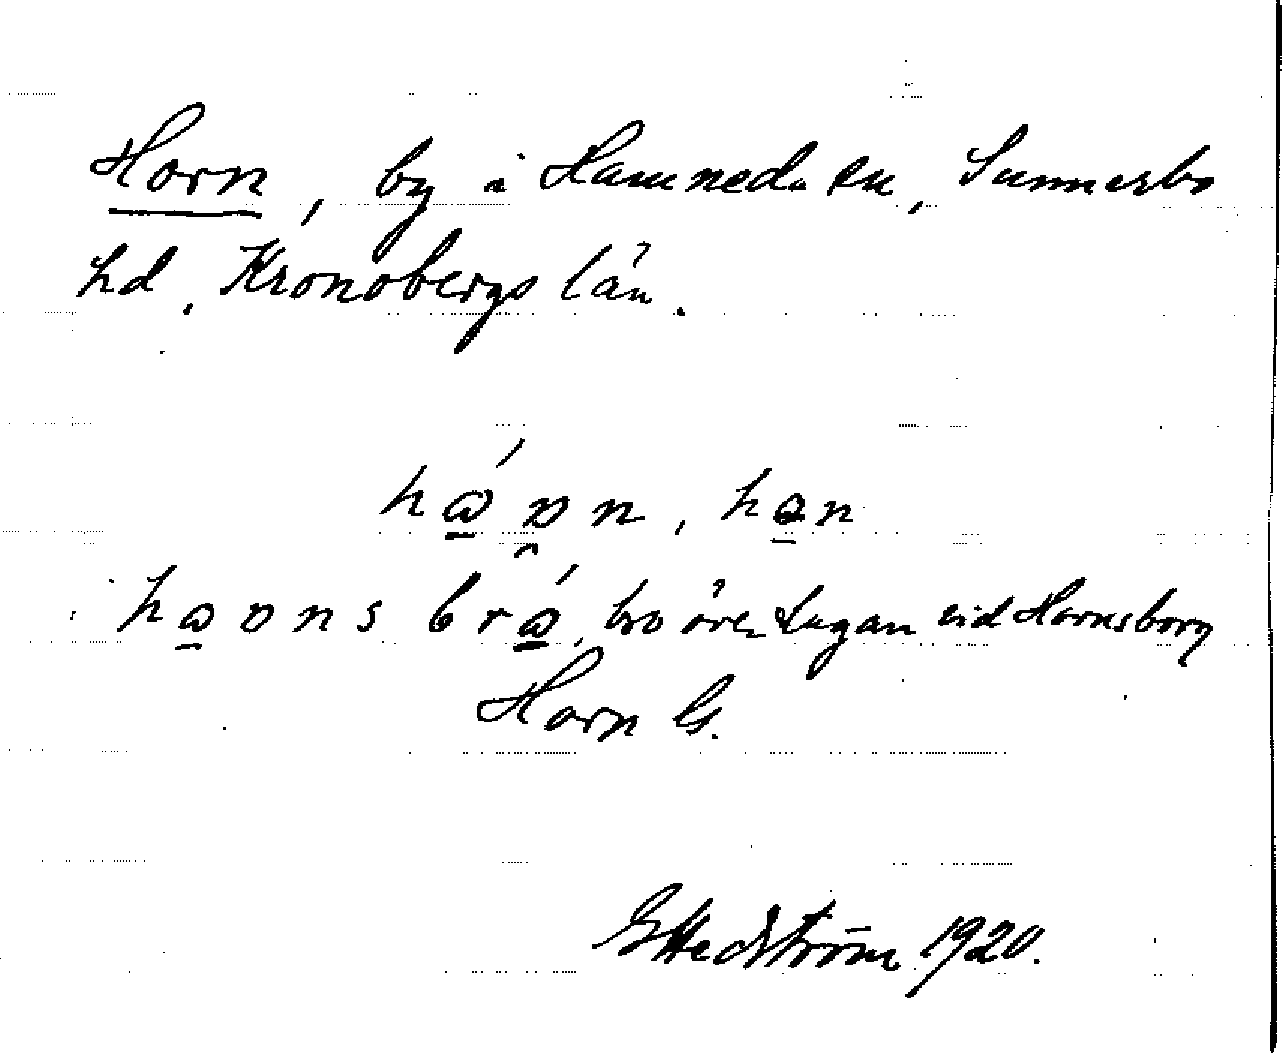 Horn, by i Hamneda sn, Sunnerbo
hd, Kronobergs län.
bro över Lagan vid Hornsborg
Horn G.
G Hedström 1920.